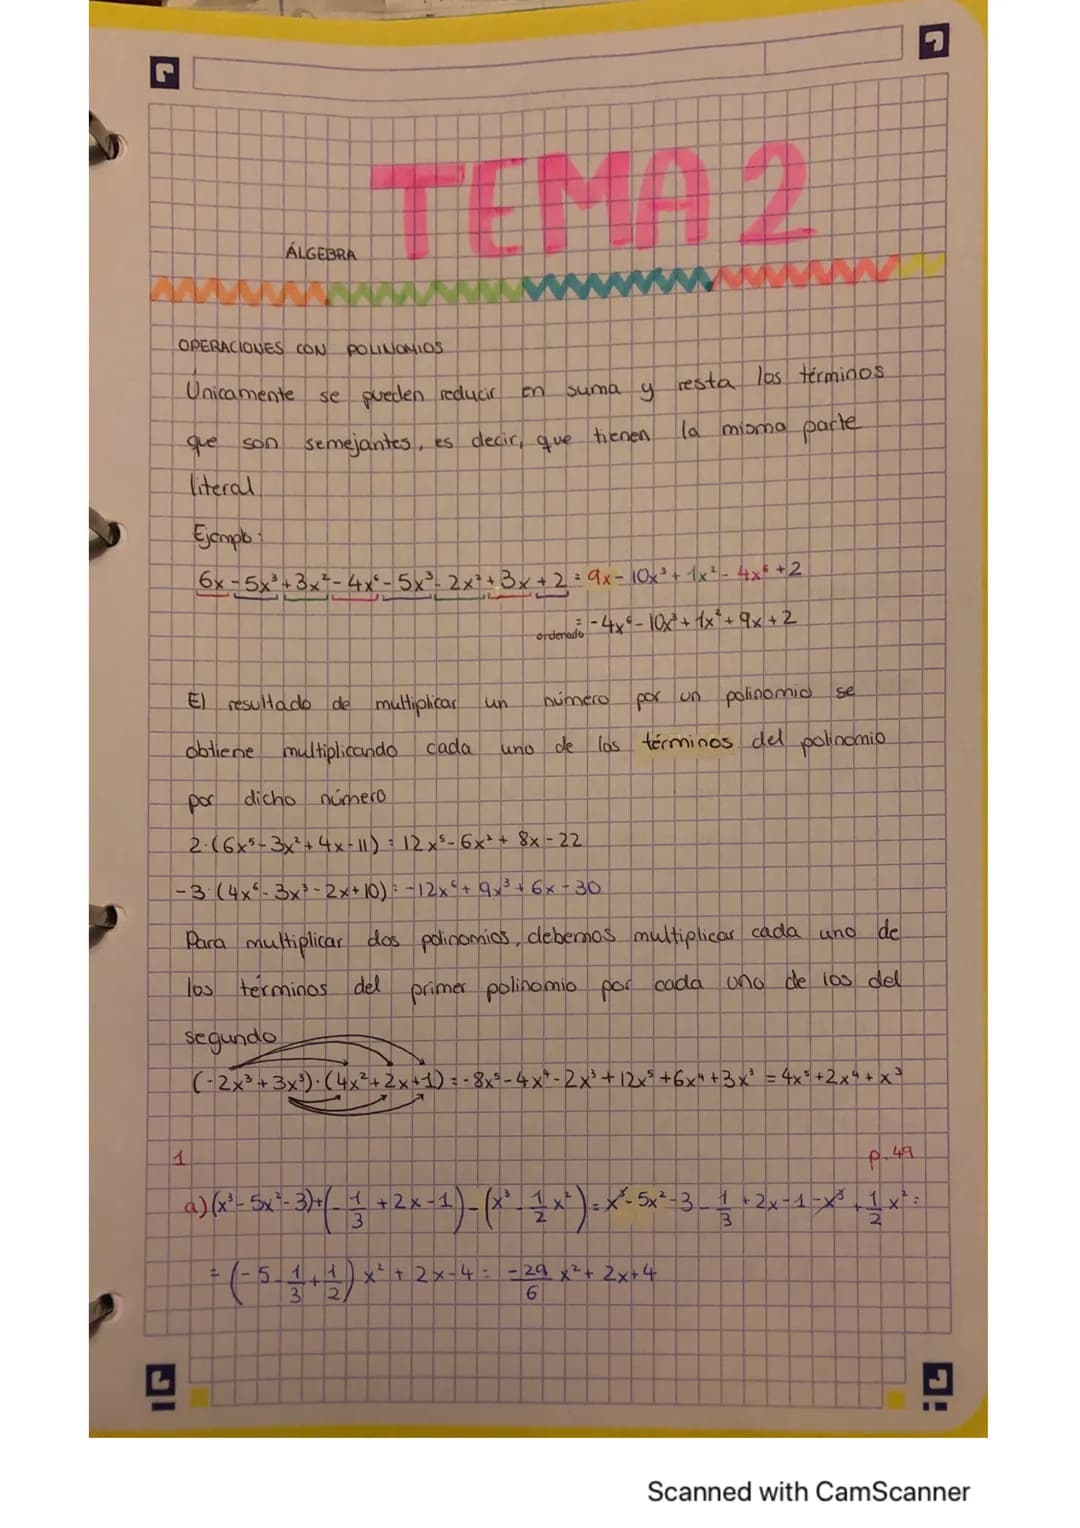 TEMA 2
ÁLGEBRA
OPERACIONES CON POLINOMIOS
Únicamente se pueden reducir en suma y resta los términos
que son semejantes, es decir, que tienen la misma parte
literal
Ejemplo:
6x-5x³+3x²-4x⁶-5x³-2x²+3x+2=9x-10x³+1x²-4x⁶+2
= -4x⁶-10x³+1x²+9x+2
ordenado
El resultado de multiplicar un número por un polinomio se
obtiene multiplicando cada uno de los términos del polinomio
por dicho número
2·(6x⁵-3x²+4x-11)=12x⁵-6x²+8x-22
-3·(4x⁶-3x³-2x+10)=-12x⁶+9x³+6x-30
Para multiplicar dos polinomios, debemos multiplicar cada uno de
los términos del primer polinomio por cada uno de los del
segundo
(-2x³+3x³)·(4x²+2x+1)=-8x⁵-4x⁴-2x³+12x⁵+6x⁴+3x³=4x⁵+2x⁴+x³
1 p.49
a)(x³-5x²-3)+(-1/3+2x-1)-(x³-1/2x²)=x³-5x²-3-1/3+2x-1-x³+1/2x²=
=(-5-1/3+1/2)x²+2x-4=-29/6x²+2x+4
Scanned with CamScanner